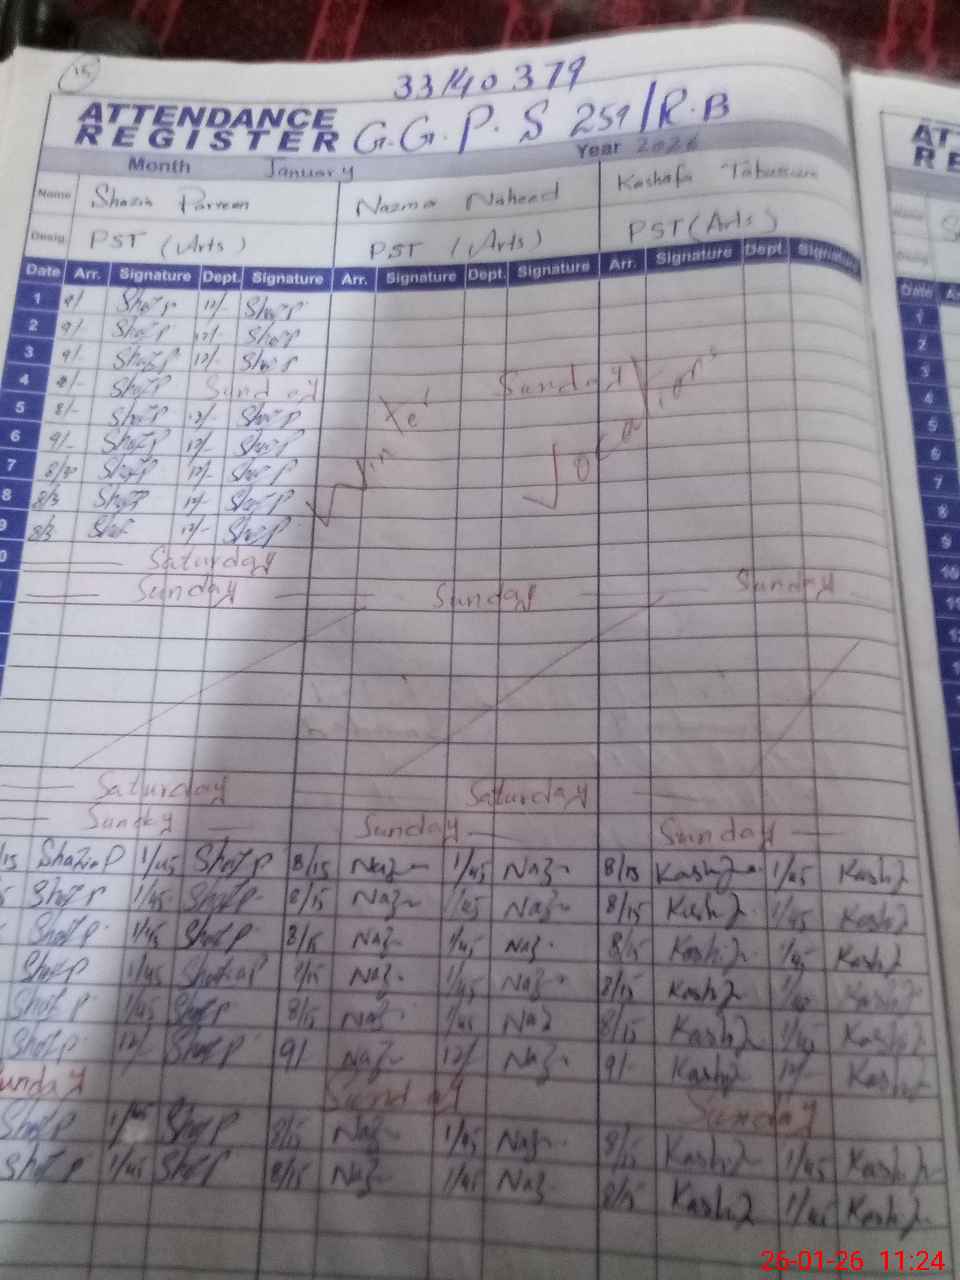 15
33140379
ATTENDANCE
REGISTER G.G.P.S 259/R.B
Month January Year 2026
Name Shazia Parveen Nazma Naheed Kashafa Tabussum
Desig. PST (Arts) PST (Arts) PST (Arts)
Date Arr. Signature Dept. Signature Arr. Signature Dept. Signature Arr. Signature Dept. Signature
1 9/- ShazP 12/- ShazP
2 9/- ShazP 12/- ShazP
3 9/- ShazP 12/- ShazP
4 ShazP Sunday Sunday
5 8/- ShazP 12/- ShazP
6 9/- ShazP 12/- ShazP
7 ShazP 12/- ShazP
8 8/3 ShazP 12/- ShazP
9 8/3 Shaz 12/- ShazP
Winter Vocations
Saturday
Sunday Sunday Sunday
Saturday Saturday
Sunday Sunday Sunday
/15 ShaziaP 1/45 ShazP 8/15 Naz 1/45 Naz 8/15 Kash 1/45 Kash
ShazP 1/45 ShazP 8/15 Naz 1/45 Naz 8/15 Kash 1/45 Kash
ShazP 1/45 ShazP 8/15 Naz 1/45 Naz 8/15 Kash 1/45 Kash
ShazP 1/45 ShaziaP 8/15 Naz 1/45 Naz 8/15 Kash Kash
ShazP 1/45 ShazP 8/15 Naz 1/45 Naz 8/15 Kash 1/45 Kash
ShazP 12/- ShazP 9/- Naz 12/- Naz 9/- Kash 12/- Kash
unday Sunday Sunday
ShazP 1/45 ShazP 8/15 Naz 1/45 Naz 8/15 Kash 1/45 Kash
ShazP 1/45 ShazP 8/15 Naz 1/45 Naz 8/15 Kash 1/45 Kash
AT
RE
Date
1
2
3
4
5
6
7
8
9
10
11
26-01-26 11:24